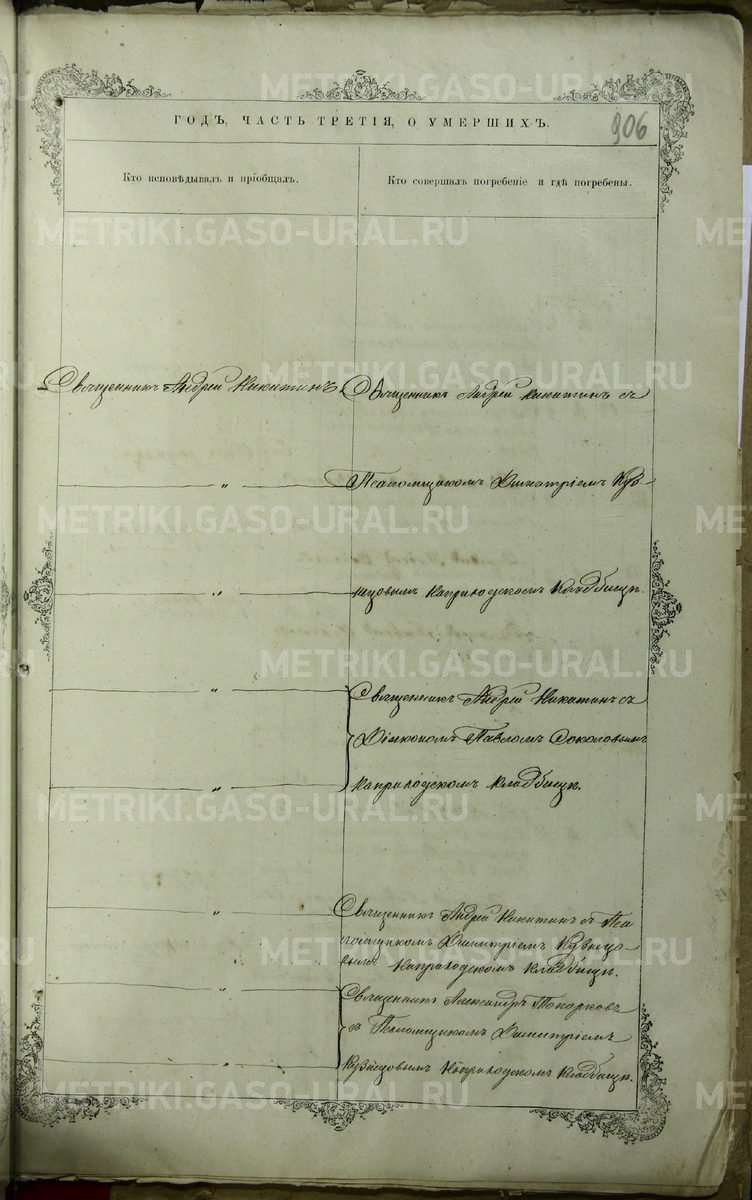 ГОДЪ, ЧАСТЬ ТРЕТІЯ, О УМЕРШИХЪ.
906
Кто исповѣдывалъ и пріобщалъ.
Кто совершалъ погребеніе и гдѣ погребены.
Священникъ Андрей Никитинъ.
Священникъ Андрей Никитинъ съ
"
Псаломщикомъ Димитріемъ Куз-
"
нецовымъ на приходскомъ кладбищѣ.
"
Священникъ Андрей Никитинъ съ
Діакономъ Павломъ Соколовымъ
"
на приходскомъ кладбищѣ.
"
Священникъ Андрей Никитинъ съ Пса
ломщикомъ Димитріемъ Кузнецо
вымъ на приходскомъ кладбищѣ.
"
Священникъ Александръ Топорковъ
съ Псаломщикомъ Димитріемъ
"
Кузнецовымъ на приходскомъ кладбищѣ.
METRIKI.GASO-URAL.RU